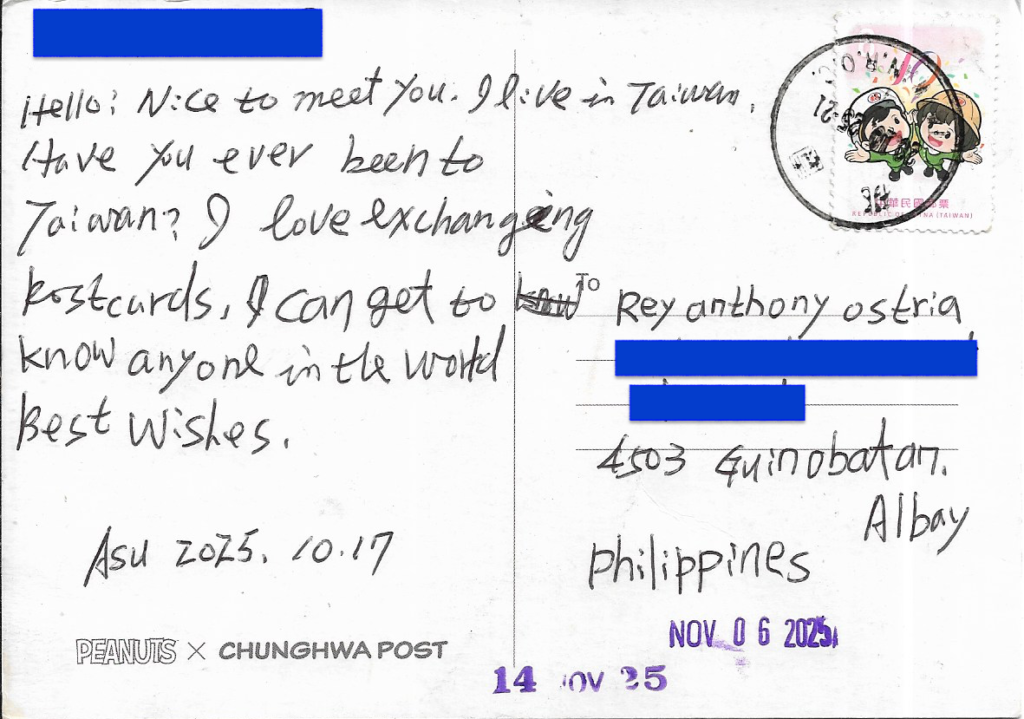 Hello! Nice to meet you. I live in Taiwan.
Have you ever been to
Taiwan? I love exchanging
postcards, I can get to
know anyone in the world
Best Wishes.
Asu 2025. 10.17
PEANUTS × CHUNGHWA POST
R.O.C.
中華民國郵票
REPUBLIC OF CHINA (TAIWAN)
TO
Rey anthony ostria
4503 Guinobatan.
Albay
Philippines
NOV 06 2025
14 NOV 25